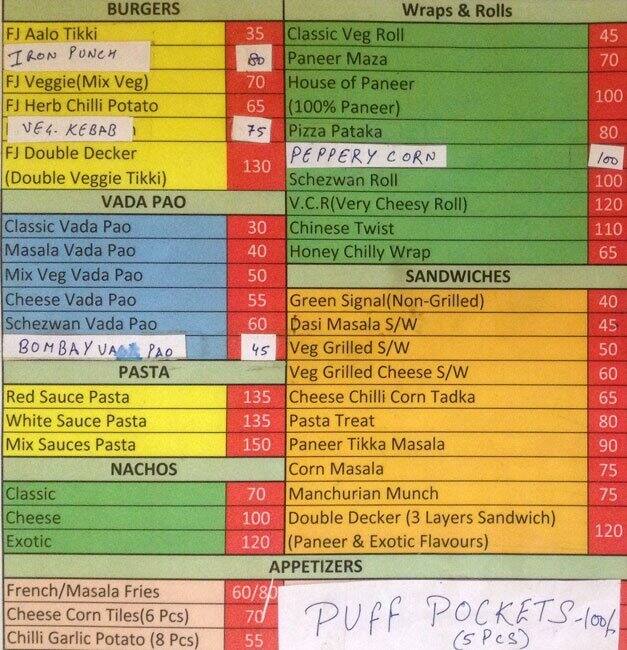 BURGERS
FJ Aalo Tikki 35
IRON PUNCH 80
FJ Veggie(Mix Veg) 70
FJ Herb Chilli Potato 65
VEG. KEBAB 75
FJ Double Decker
(Double Veggie Tikki) 130
VADA PAO
Classic Vada Pao 30
Masala Vada Pao 40
Mix Veg Vada Pao 50
Cheese Vada Pao 55
Schezwan Vada Pao 60
BOMBAY VADA PAO 45
PASTA
Red Sauce Pasta 135
White Sauce Pasta 135
Mix Sauces Pasta 150
NACHOS
Classic 70
Cheese 100
Exotic 120
Wraps & Rolls
Classic Veg Roll 45
Paneer Maza 70
House of Paneer
(100% Paneer) 100
Pizza Pataka 80
PEPPERY CORN 100
Schezwan Roll 100
V.C.R(Very Cheesy Roll) 120
Chinese Twist 110
Honey Chilly Wrap 65
SANDWICHES
Green Signal(Non-Grilled) 40
Dasi Masala S/W 45
Veg Grilled S/W 50
Veg Grilled Cheese S/W 60
Cheese Chilli Corn Tadka 65
Pasta Treat 80
Paneer Tikka Masala 90
Corn Masala 75
Manchurian Munch 75
Double Decker (3 Layers Sandwich)
(Paneer & Exotic Flavours) 120
APPETIZERS
French/Masala Fries 60/80
Cheese Corn Tiles(6 Pcs) 70
Chilli Garlic Potato (8 Pcs) 55
PUFF POCKETS-100/-
(5 PCS)